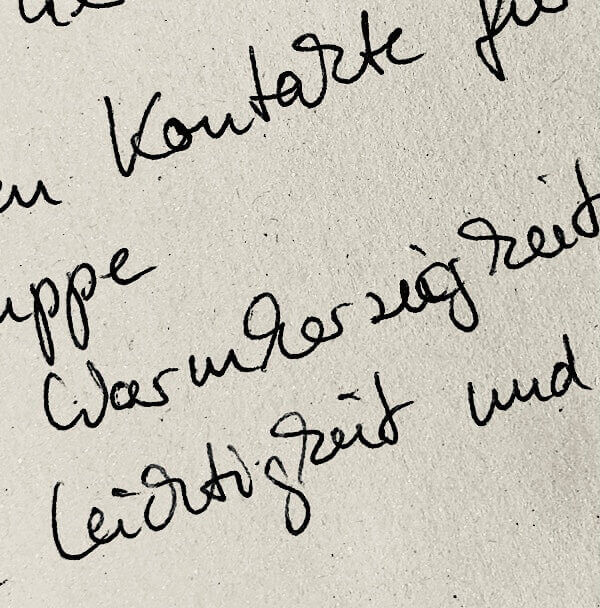 Kontakte
uppe
Warmherzigkeit
Leichtigkeit und